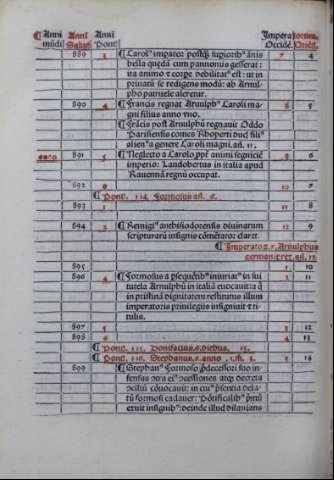 Anni mũdi Anni Salut⁹ Anni Pont⁹ Impera Occidẽ. torum. Oriẽt.
889 2 ¶ Carol⁹ imperatoꝛ postq̃ supioꝛib⁹ ãnis 7 4
bella quędã cum pannoniis gesserat:
ita animo ⁊ coꝛpe debilitat⁹ est: ut in
priuatũ se redigens modũ: ab Arnul-
pho patruele aleretur.
890 4 ¶ Francis regnat Arnulph⁹ Caroli ma 8 5
gni filius anno vno.
Frãcis post Arnulphũ regnauit Oddo
Parisiensis comes Roberti
alien⁹ a genere Caroli magni. añ. 11.
891 5 ¶ Neglecto a Carolo ppẽ animi segniciẽ 9 6
imperio: Landobertus in italia apud
Rauennã regnũ occupat.
892 6 10 7
¶ Pont⁹. 114. Formosus añ. 6.
893 1 11 8
894 2 ¶ Remigi⁹ anthisiodoꝛensis diuinarum 12 9
scripturarũ insignis cõmẽtatoꝛ claret.
¶ Imperatoꝛ. Arnulphus
german⁹ ⁊ ret. añ. 12.
895 1 10
896 4 ¶ Foꝛmosus a psequẽtib⁹ iniurias in sui 2 11
tutela Arnulphũ in italiã euocauit: a q̃
in pristinã dignitatem restitutus illum
imperatoꝛis priuilegiis insigniuit ⁊ ti-
tulis.
897 5 3 12
898 6 4 13
¶ Pont⁹. 115. Bonifacius. 6. diebus 15.
¶ Pont⁹. 116. Stephanus. 6. anno .1. 5 14
899 ¶ Stephan⁹ Foꝛmoso p̃decessoꝛi suo in-
fensas oĩa ei⁹ atq̃ decreta
cõuocauit: in cui⁹ p̃sentia dela-
tũ foꝛmosi cadauer: Põtificalib⁹ p̃mũ
eruit insignib⁹: deinde illud dilanians